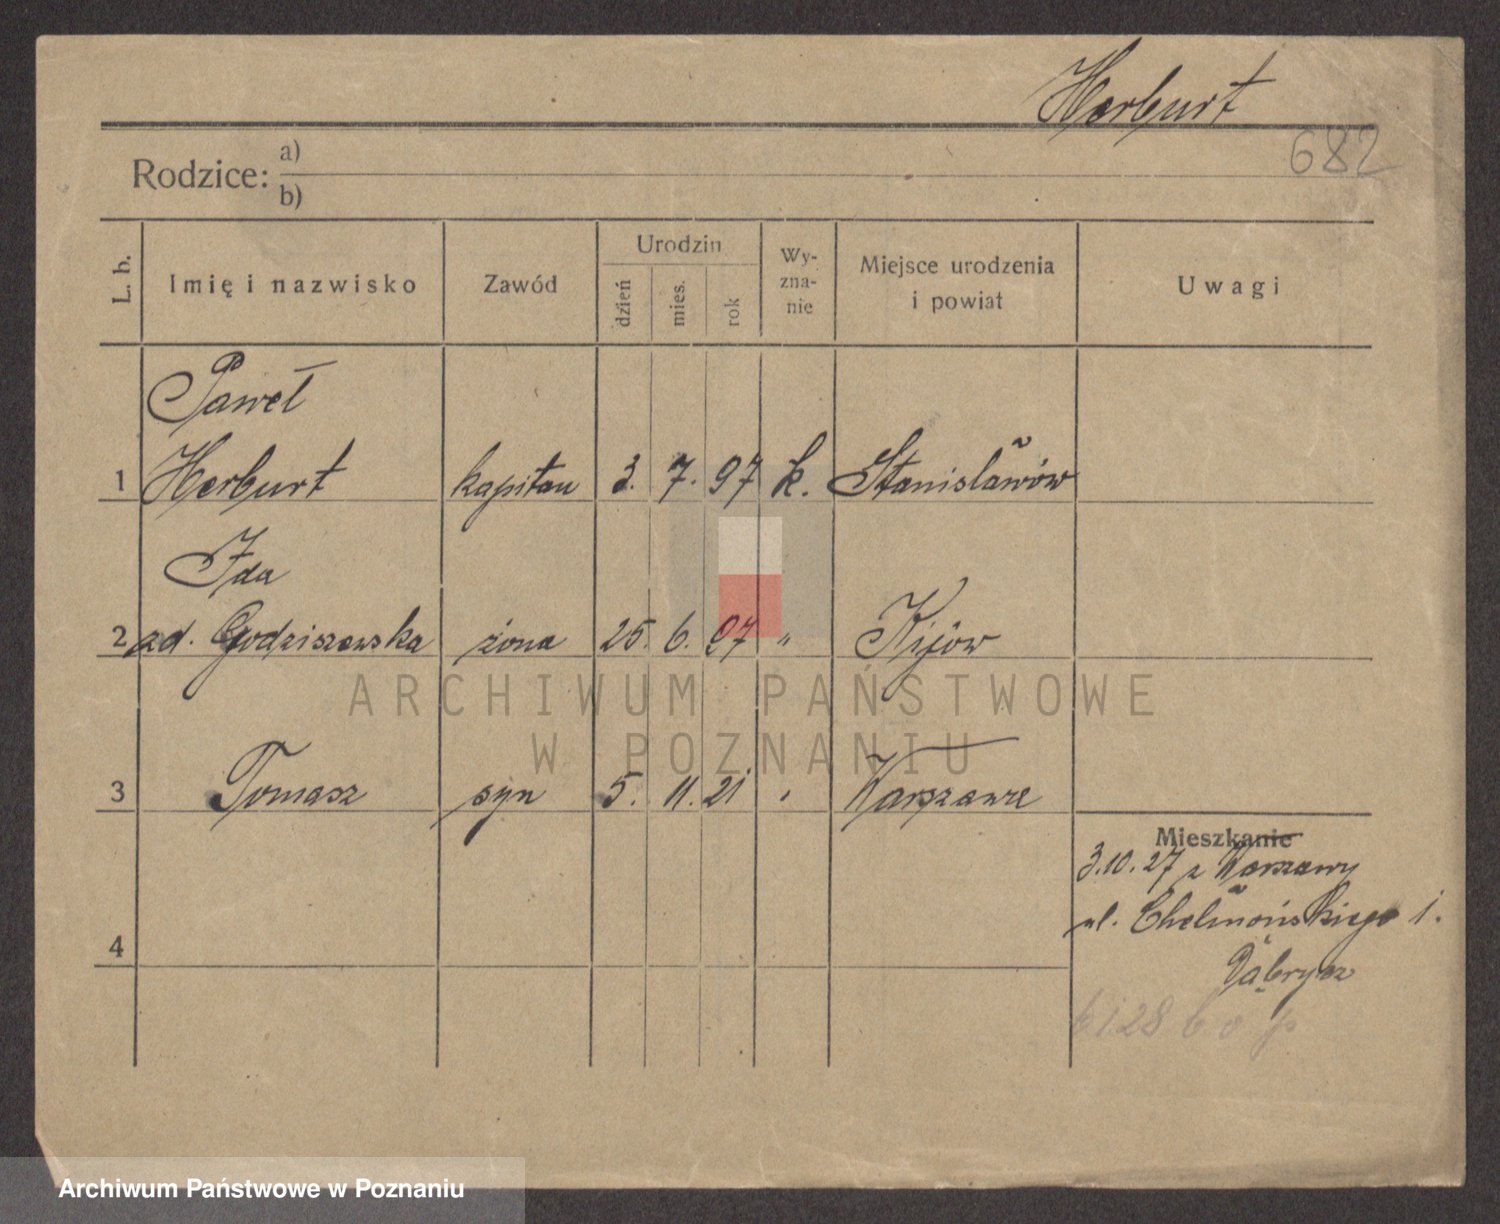 Herburt
682
Rodzice: a)
b)
L. b.
Imię i nazwisko
Zawód
Urodzin
dzień
mies.
rok
Wy-
zna-
nie
Miejsce urodzenia
i powiat
Uwagi
Paweł
1 Herburt kapitan 3. 7. 97 k. Stanisławów
Ida
2 zd. Godziszewska żona 25. 6. 97 " Kijów
3 Tomasz syn 5. 11. 21 " Warszawa
Mieszkanie
3.10.27 z Warszawy
ul. Chełmońskiego 1.
4
ARCHIWUM PAŃSTWOWE
W POZNANIU
Archiwum Państwowe w Poznaniu